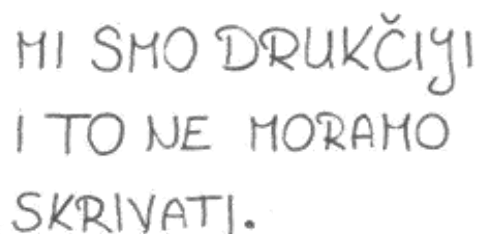 MI SMO DRUKČIJI
I TO NE MORAMO
SKRIVATI.